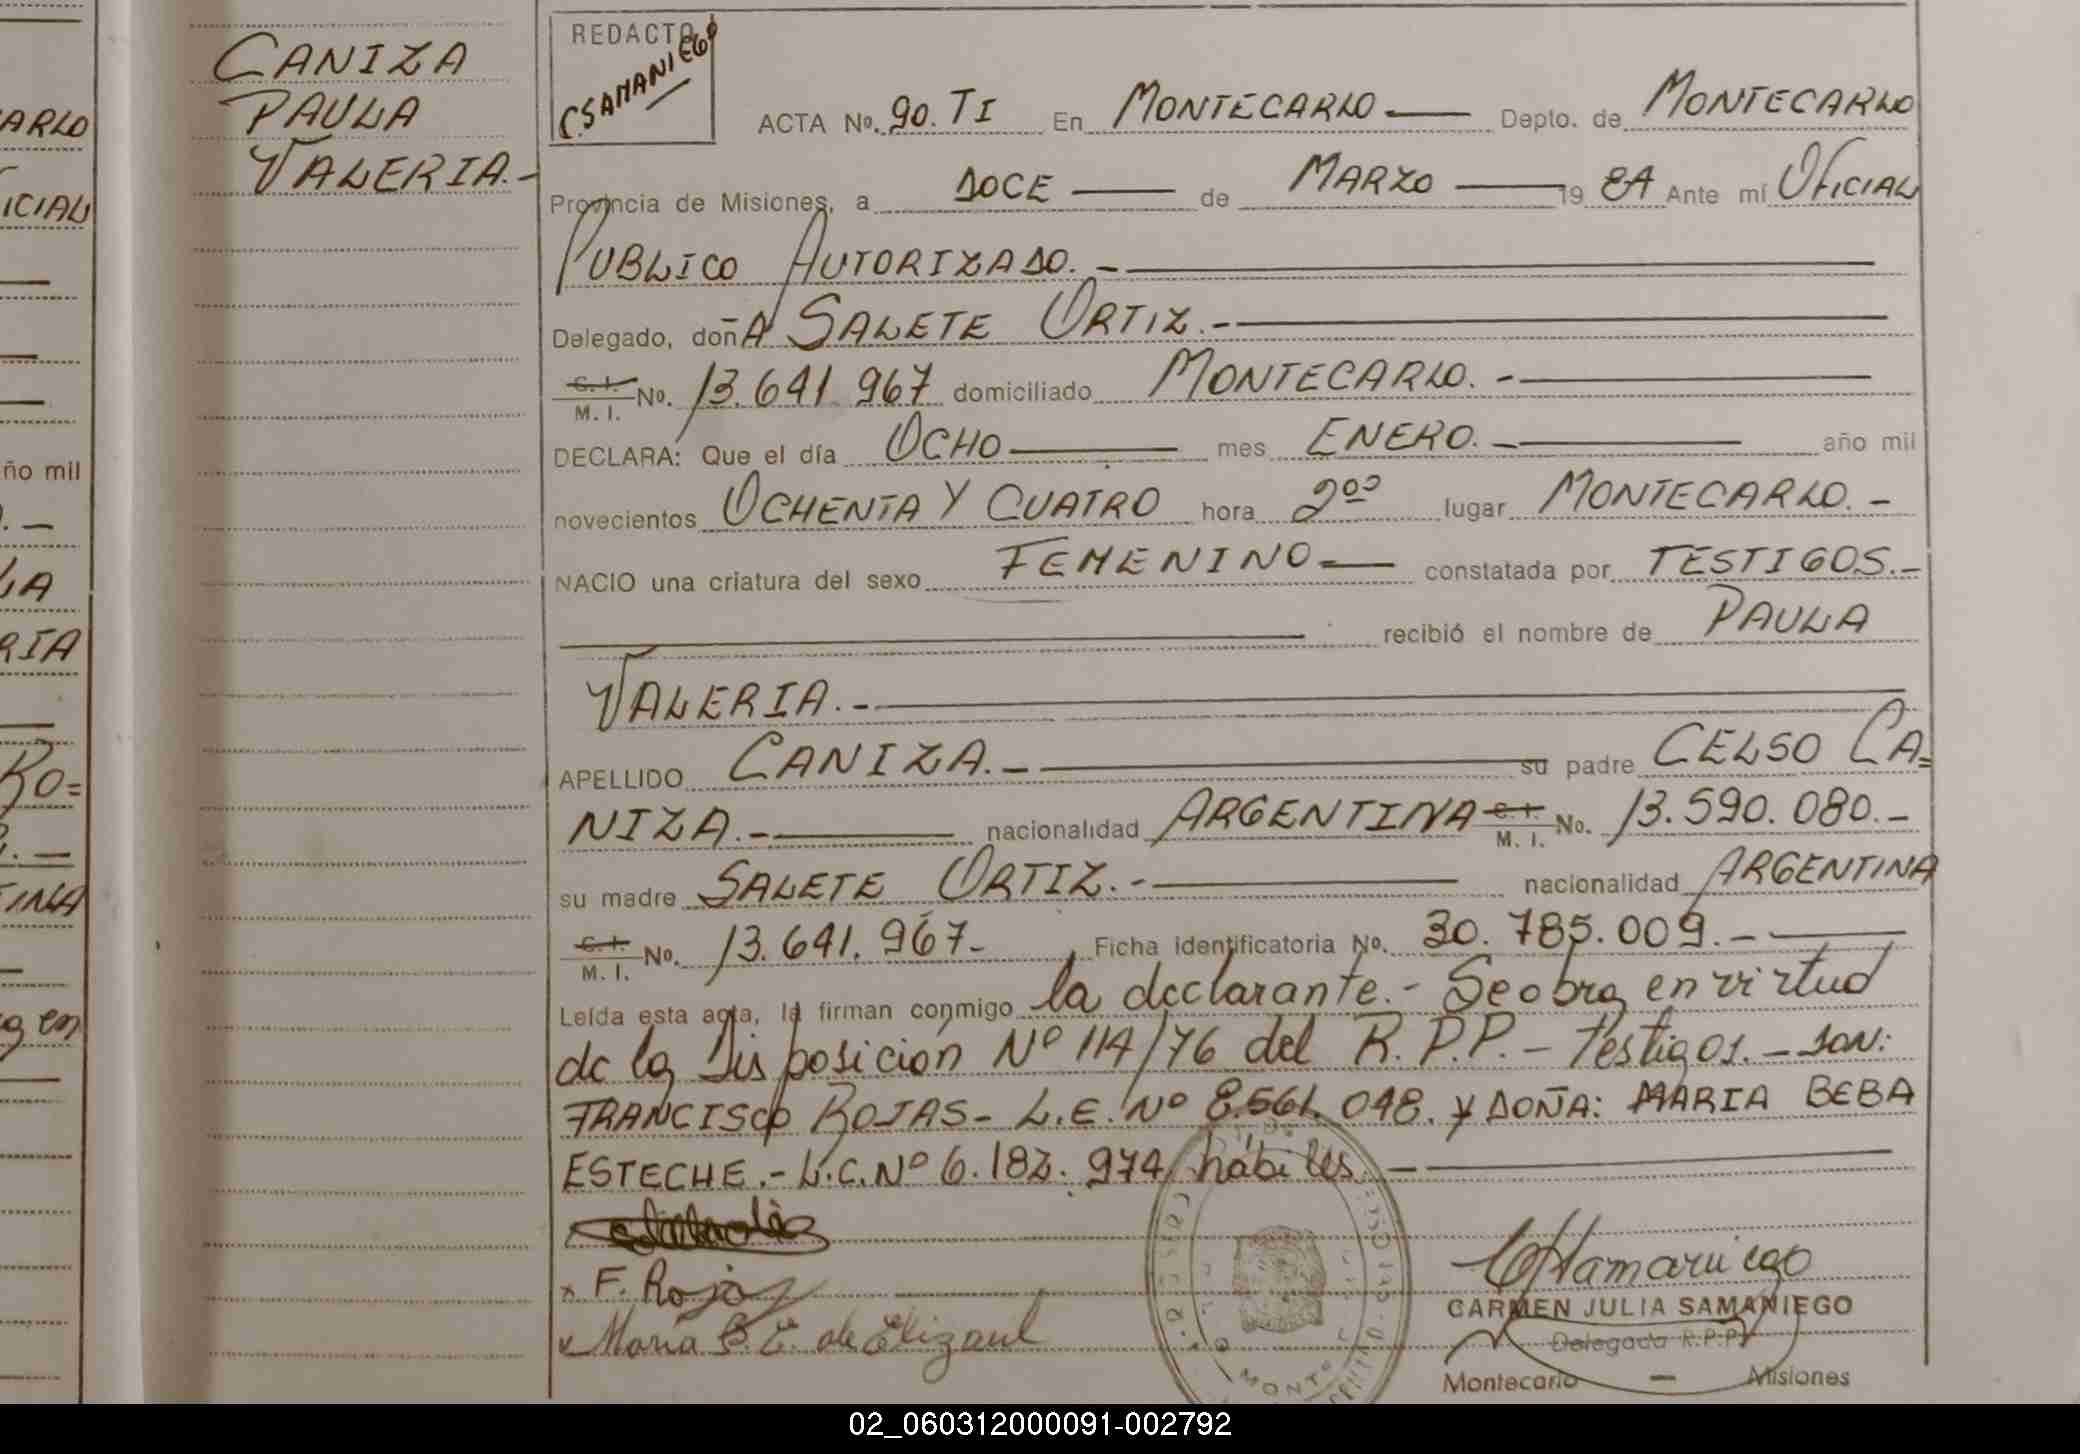 CANIZA
PAULA
VALERIA.-
REDACTO
C.SAMANIEGO
ACTA No. 90. TI En MONTECARLO Depto. de MONTECARLO
Provincia de Misiones, a DOCE de MARZO 19 84 Ante mí OFICIAL
PUBLICO AUTORIZADO. -
Delegado, doñA SALETE ORTIZ.-
C. I.
M. I. No. 13.641.967 domiciliado MONTECARLO. -
DECLARA: Que el día OCHO mes ENERO. - año mil
novecientos OCHENTA Y CUATRO hora 2⁰⁰ lugar MONTECARLO. -
NACIO una criatura del sexo FEMENINO constatada por TESTIGOS.-
recibió el nombre de PAULA
VALERIA.-
APELLIDO CANIZA.- su padre CELSO CA=
NIZA.- nacionalidad ARGENTINA C. I.
M. I. No. 13.590.080.-
su madre SALETE ORTIZ.- nacionalidad ARGENTINA
C. I.
M. I. No. 13.641.967- Ficha identificatoria No. 30.785.009.-
Leída esta acta, la firman conmigo la declarante.- Se obra en virtud
de la Disposición Nº 114/76 del R.P.P.- Testigos.- SON:
FRANCISCO ROJAS- L.E. Nº 8.561.048. Y DOÑA: MARIA BEBA
ESTECHE.- L.C. Nº 6.182.974, hábiles.-
x F. Rojas
x Maria B. E. de
CARMEN JULIA SAMANIEGO
Delegada R.P.P.
Montecarlo - Misiones
02_060312000091-002792